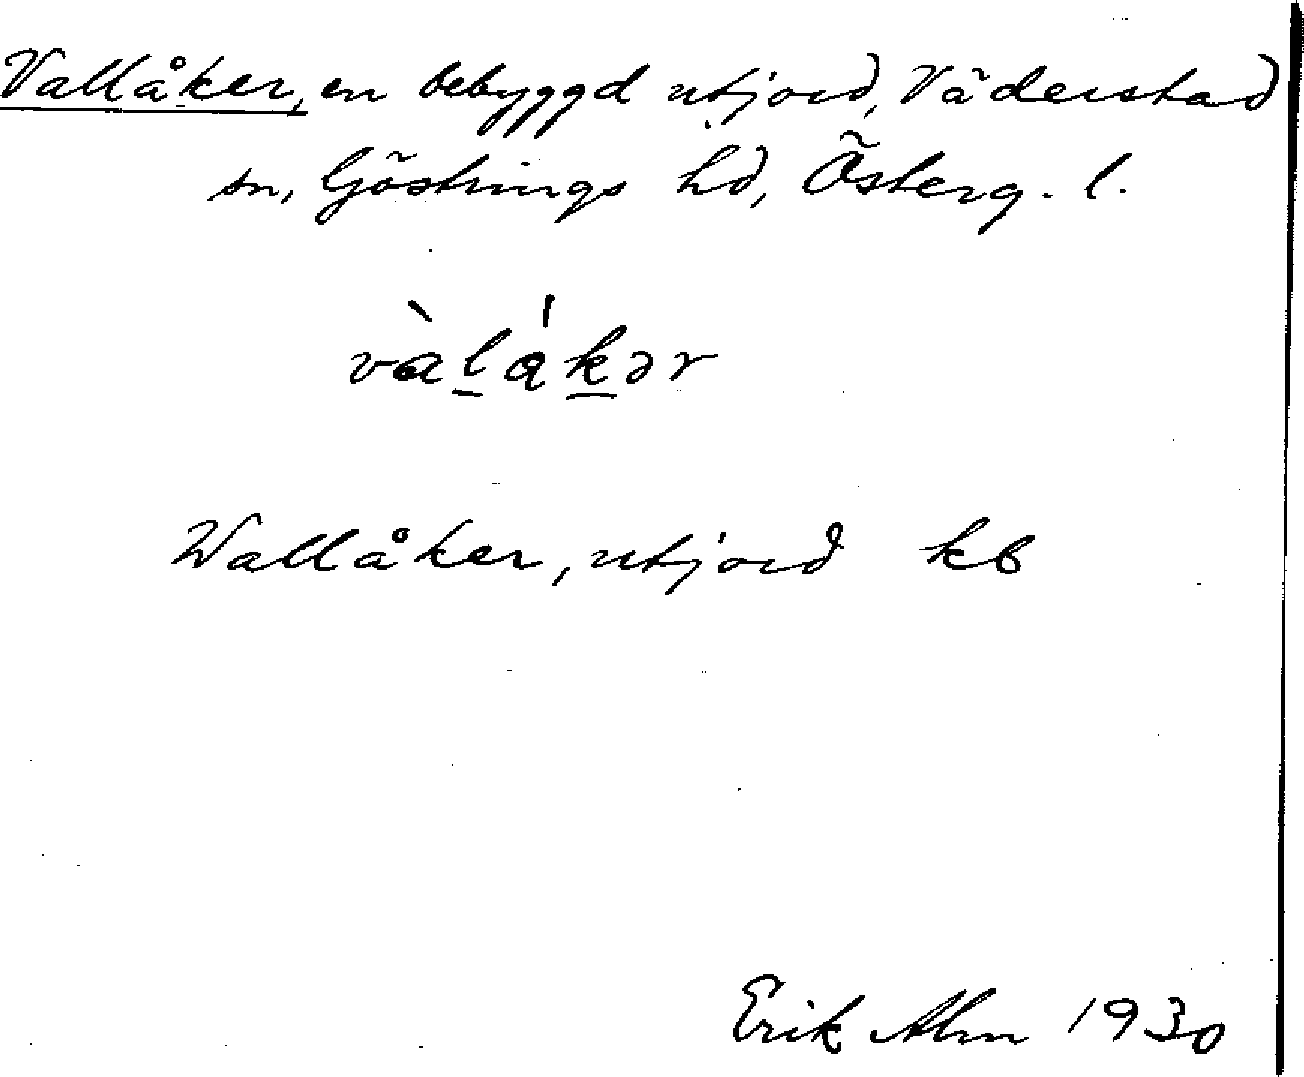 Vallåker, en bebyggd utjord, Väderstad
sn, Göstrings hd, Österg. l.
vàlákər
Wallåker, utjord kb
Erik Alm 1930